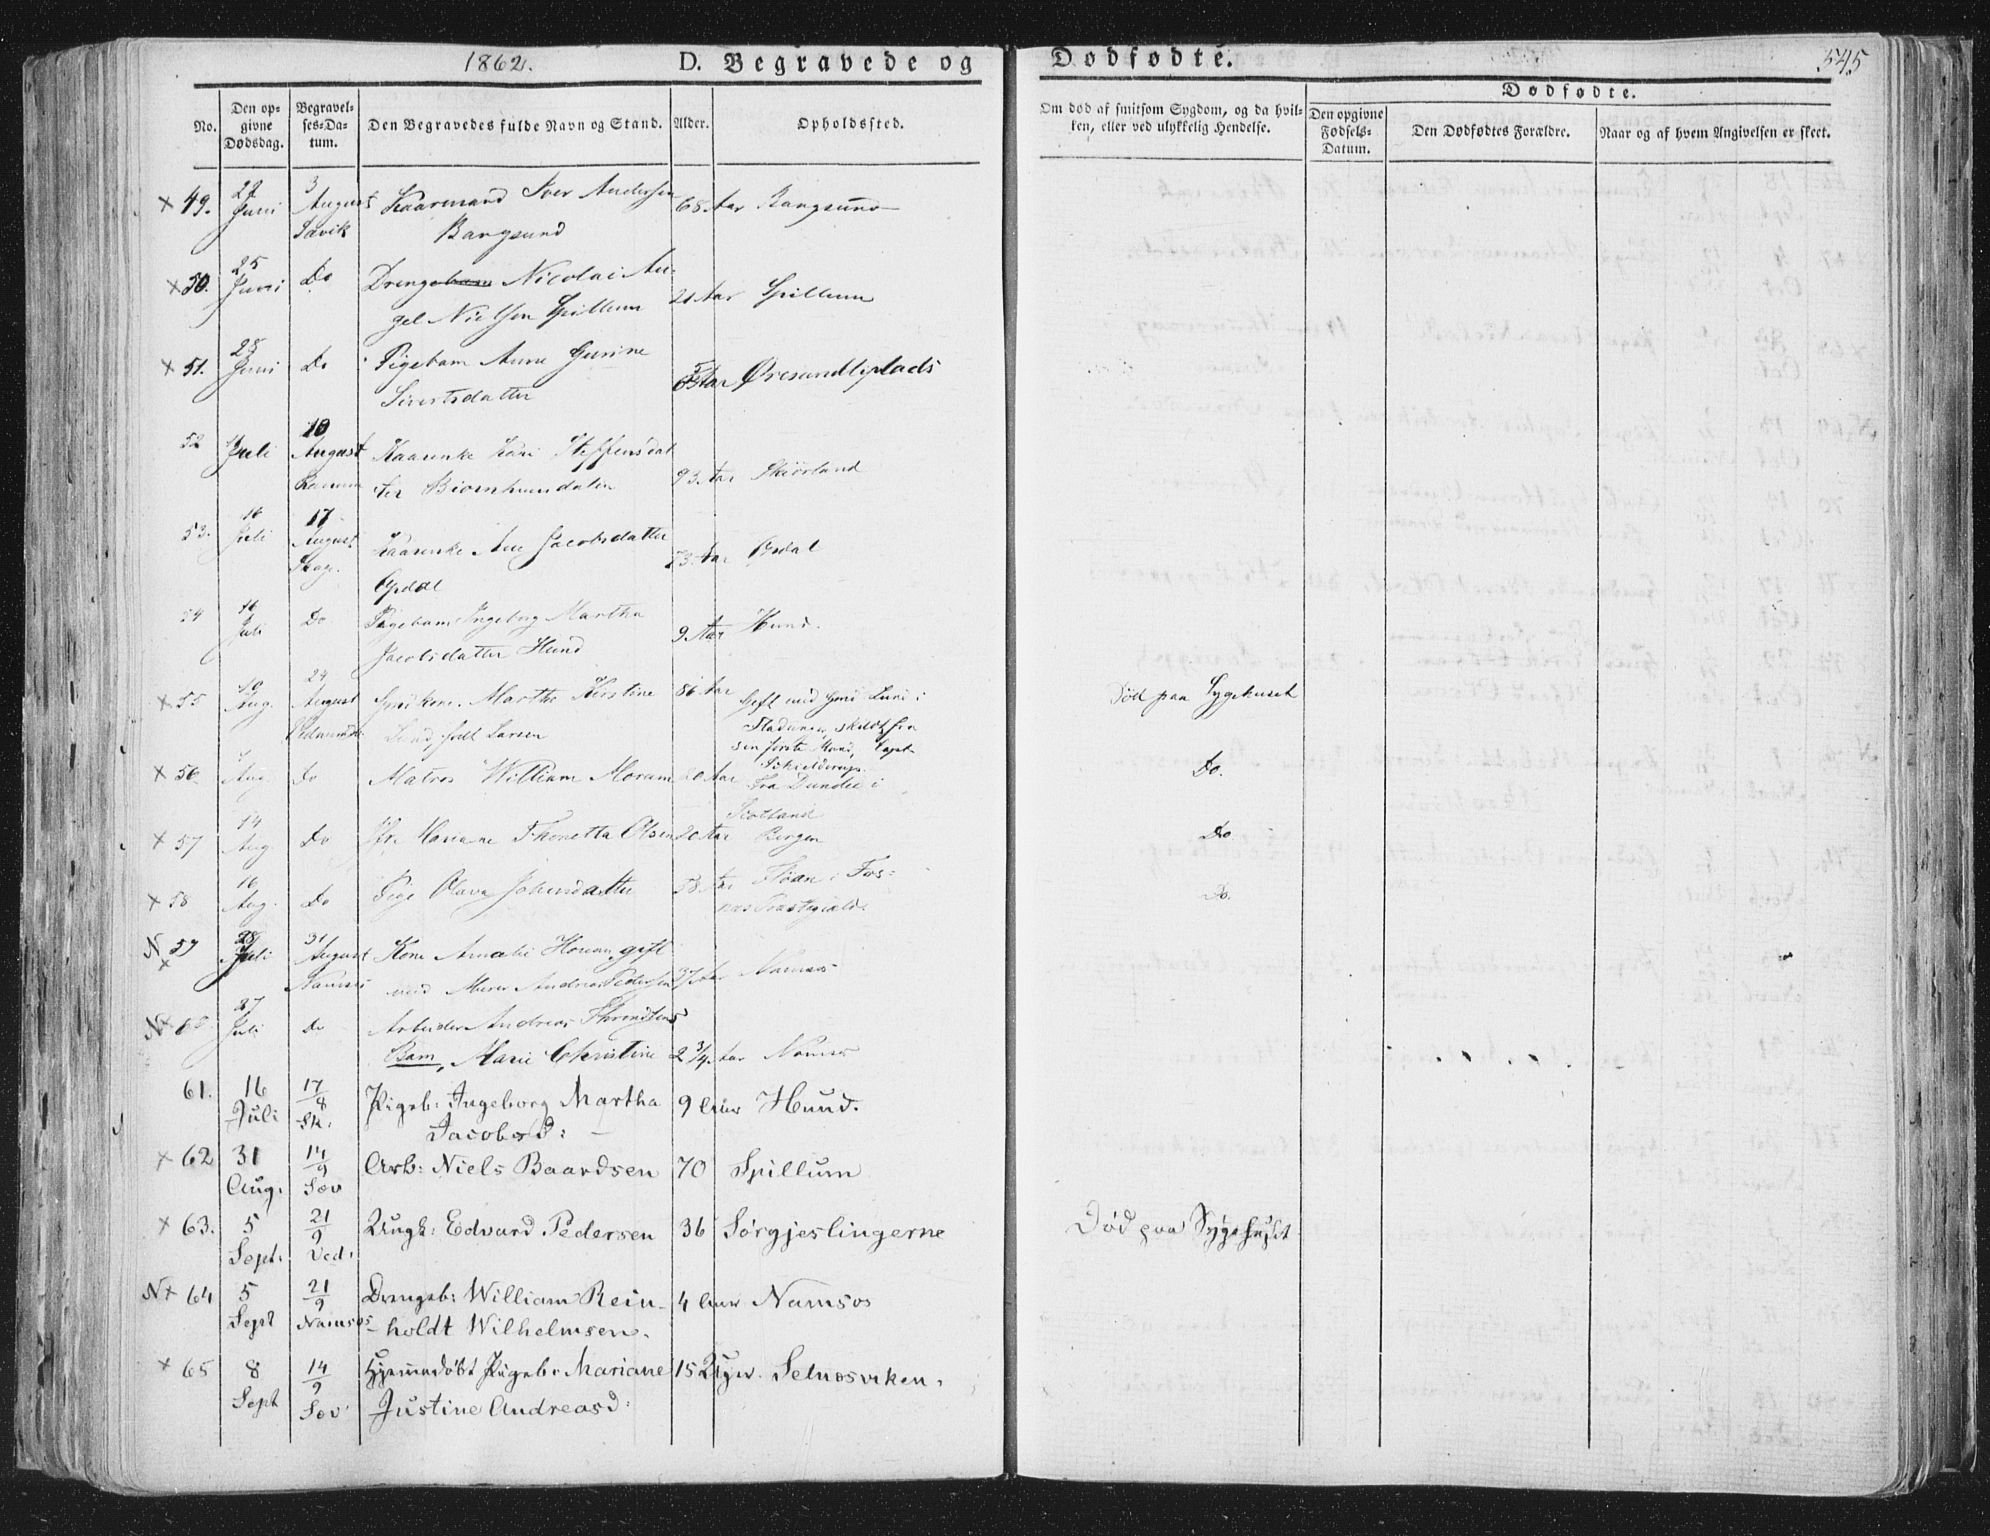 1862.
D. Begravede og
Dødfødte.
545
No.
Den op-
givne
Dødsdag.
Begravel-
ses-Da-
tum.
Den Begravedes fulde Navn og Stand.
Alder.
Opholdssted.
Om død af smitsom Sygdom, og da hvil-
ken, eller ved ulykkelig Hendelse.
Dødfødte.
Den opgivne
Fødsels-
Datum.
Den Dødfødtes Forældre.
Naar og af hvem Angivelsen er skeet.
× 49. 22 Juni 3 August Sævik Kaarmand Iver Andersen 68 Aar Bangsund
Bangsund
× 50. 25 Juni Do Drengebarn Nicolai An-
gel Nielsen Spillum 21 Aar Spillum
× 51. 25 Juni Do Pigebarn Anne Gurine
Sivertsdatter Aar Øresundtplads
52 Juli 10 August Kaarenke Kari Steffensdat
ter Biørnhundalen 93 Aar Skiørland
53. 16 Juli 17 August Skag. Kaarenke Ane Jacobsdatter
Opdal 73 Aar Opdal
54 16 Juli Do Pigebarn Ingeborg Martha
Jacobsdatter Hund 9 Aar Hund.
× 55 10 Aug. 24 August Martha Kirstine 86 Aar Gift med Lund i Død paa Sygehuset
Lund, født Larsen Fladanger, skildt fra
sin første Mand, Capt.
× 56 Aug Do Matros William Moram 20 Aar Fra Dundee i Do.
Scotland
× 57 14 Aug. Do Jfr. Mariane Thonetta Olsen 20 Aar Bergen Do
× 58 16 Aug. Do Pige Olava Johnsdatter 58 Aar Fløan i Fos- Do.
næs Præstegield.
N × 59 28 Juli 31 August Namsos Kone Amalie gift
med Murer Andreas Pedersen 37 Aar Namsos
N × 60 27 Juli Do Arbeider Andreas
Barn, Marie Christine 2 3/4 Aar Namsos
61. 16 Juli 17/8 Sk. Pigeb: Ingeborg Martha 9 Aar Hund.
Jacobsd:
× 62 31 Aug. 14/9 Sæv Arb: Niels Baardsen 70 Spillum
× 63. 5 Sept: 21/9 Ved. Ungk: Edvard Pedersen 36 Sørgjeslingerne Død paa Sygehuset
N × 64 5 Sept 21/9 Namsos Drengeb: William Rein-
holdt Wilhelmsen. 4 Aar Namsos
× 65 8 Sept 14/9 Sæv Hjemmedøbt Pigeb: Mariane 15 Uger. Selnæsviken.
Justine Andreasd: